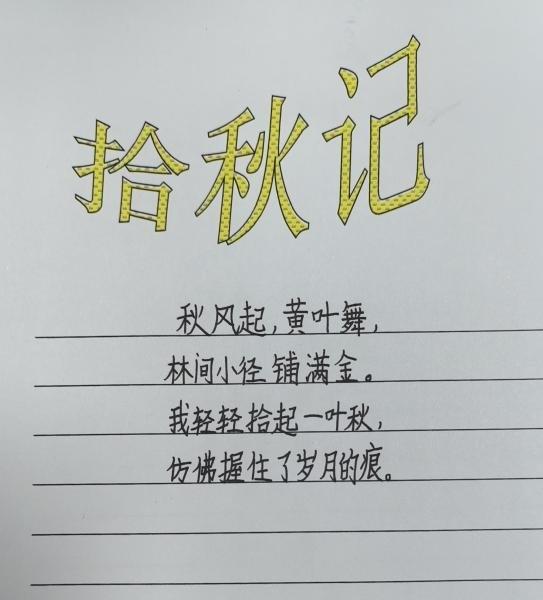 拾秋记
秋风起,黄叶舞,
林间小径铺满金。
我轻轻拾起一叶秋,
仿佛握住了岁月的痕。